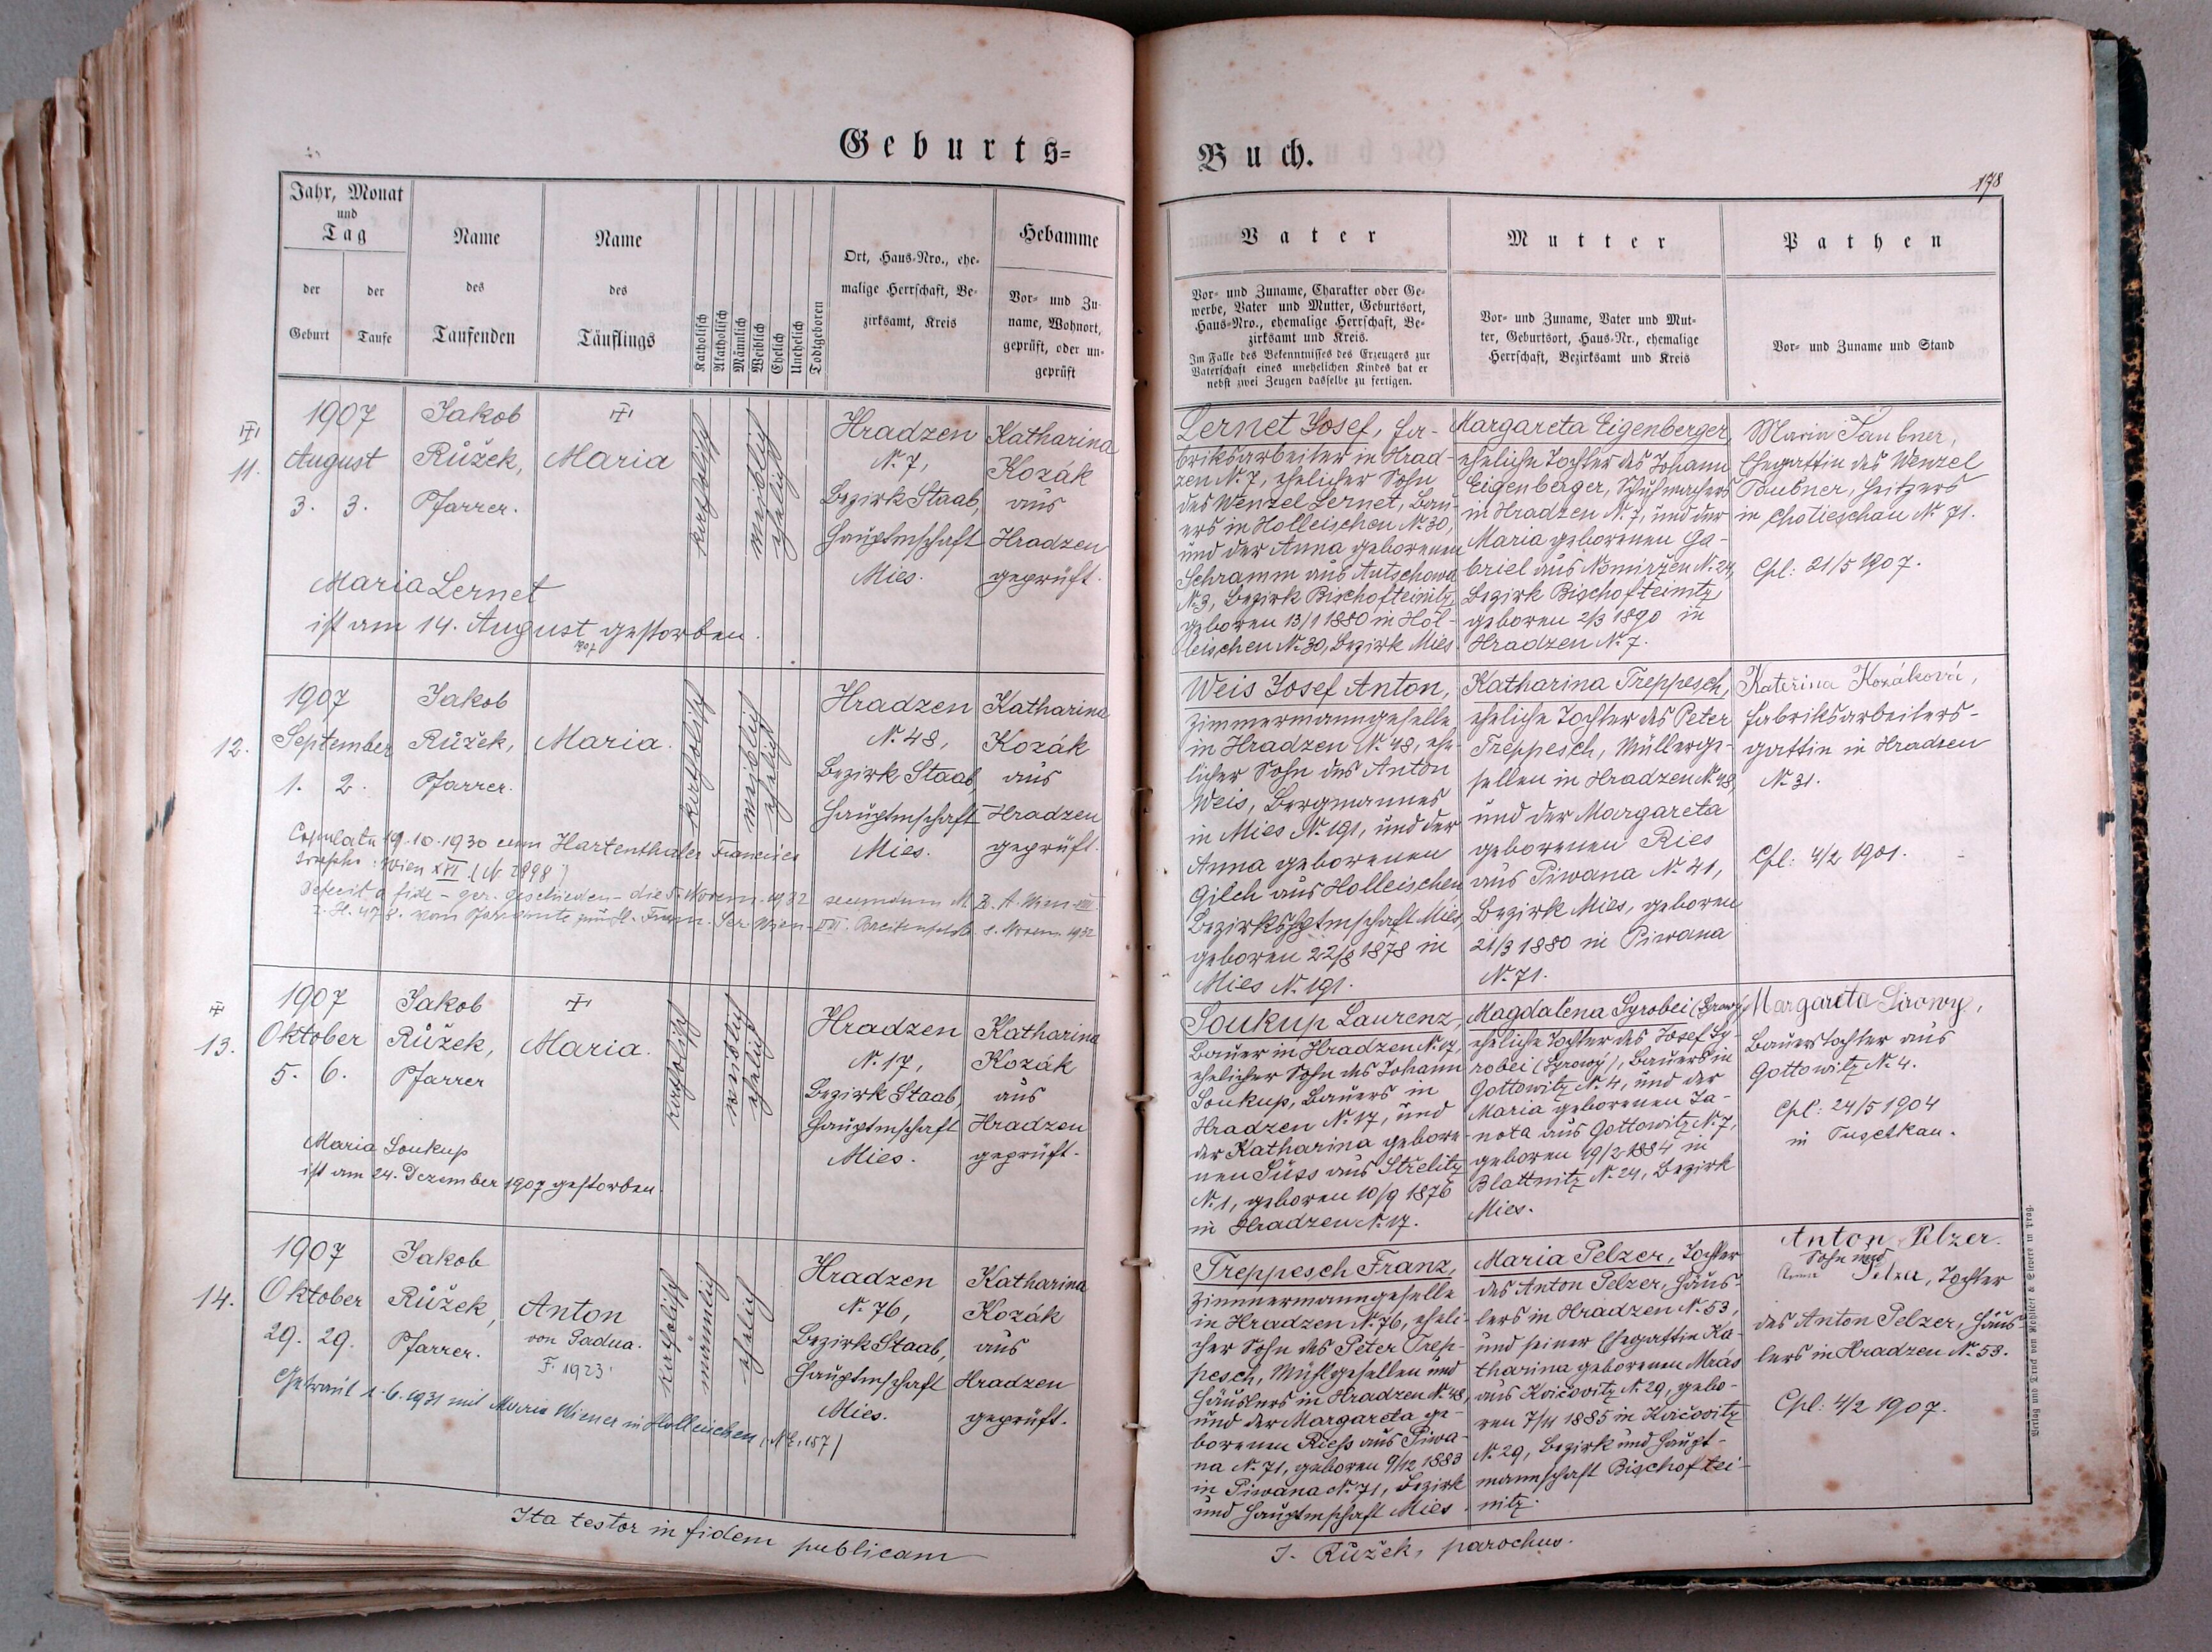 Geburts=
Jahr, Monat
und
Tag
der
Geburt
der
Taufe
Name
des
Taufenden
Name
des
Täuflings
Katholisch
Akatholisch
Männlich
Weiblich
Ehelich
Unehelich
Todtgeboren
Ort, Haus-Nro., ehe-
malige Herrschaft, Be-
zirksamt, Kreis
Hebamme
Vor- und Zu-
name, Wohnort,
geprüft, oder un-
geprüft
11.
1907
August
3. 3.
Jakob
Růžek,
Pfarrer.
Maria
katholisch
weiblich
ehelich
Hradzen
N. 7,
Bezirk Staab,
Hauptmschaft
Mies.
Katharina
Kozák
aus
Hradzen
geprüft.
Maria Lernet
ist am 14. August gestorben.
1907
12.
1907
September
1. 2.
Jakob
Růžek,
Pfarrer.
Maria.
katholisch
weiblich
ehelich
Hradzen
N. 48,
Bezirk Staab
Hauptmschaft
Mies.
Katharina
Kozák
aus
Hradzen
geprüft.
Copulata 19.10.1930 cum Hartenthaler
Wien XVI. (N. 2898)
a fide - ger. geschieden - die 5. Novem. 1932
13.
1907
Oktober
5. 6.
Jakob
Růžek,
Pfarrer
Maria.
katholisch
weiblich
ehelich
Hradzen
N. 17,
Bezirk Staab,
Hauptmschaft
Mies.
Katharina
Kozák
aus
Hradzen
geprüft.
Maria Soukup
ist am 24. Dezember 1907 gestorben.
14.
1907
Oktober
29. 29.
Jakob
Růžek,
Pfarrer.
Anton
von Padua.
F. 1923
katholisch
männlich
ehelich
Hradzen
N. 76,
Bezirk Staab,
Hauptmschaft
Mies.
Katharina
Kozák
aus
Hradzen
geprüft.
Getraut 1.6.1931 mit Maria Wiener in Holleischen
Ita testor in fidem publicam
Buch.
178
Vater
Vor- und Zuname, Charakter oder Ge-
werbe, Vater und Mutter, Geburtsort,
Haus-Nro., ehemalige Herrschaft, Be-
zirksamt und Kreis.
Im Falle des Bekenntnisses des Erzeugers zur
Vaterschaft eines unehelichen Kindes hat er
nebst zwei Zeugen dasselbe zu fertigen.
Mutter
Vor- und Zuname, Vater und Mut-
ter, Geburtsort, Haus-Nr., ehemalige
Herrschaft, Bezirksamt und Kreis
Pathen
Vor- und Zuname und Stand
Lernet Josef, Fa-
briksarbeiter in Hrad-
zen N. 7, ehelicher Sohn
des Wenzel Lernet, Bau-
ers in Holleischen N. 30,
und der Anna geborenen
Schramm aus Autschowa
N. 3, Bezirk Bischofteinitz,
geboren 13/1 1880 in Hol-
leischen N. 30, Bezirk Mies
Margareta Eigenberger,
eheliche Tochter des Johann
Eigenberger, Schuhmachers
in Hradzen N. 7, und der
Maria geborenen Ga-
briel aus Nomirzen N. 24,
Bezirk Bischofteinitz,
geboren 2/3 1890 in
Hradzen N. 7.
Maria Taubner,
Ehegattin des Wenzel
Taubner, Heitzers
in Chotieschau N. 71.
Cpl: 21/5 1907.
Weis Josef Anton,
Zimmermanngeselle
in Hradzen N. 48, ehe-
licher Sohn des Anton
Weis, Bergmannes
in Mies N. 191, und der
Anna geborenen
Gilch aus Holleischen,
Bezirkshptmschaft Mies,
geboren 22/8 1878 in
Mies N. 191.
Katharina Treppesch,
eheliche Tochter des Peter
Treppesch, Müllerge-
sellen in Hradzen N. 48,
und der Margareta
geborenen Ries
aus Piwana N. 21,
Bezirk Mies, geboren
21/3 1880 in Piwana
N. 71.
Kateřina Kozáková,
Fabriksarbeiters-
gattin in Hradzen
N. 31.
Cpl: 4/2 1901.
Soukup Laurenz,
Bauer in Hradzen N. 17,
ehelicher Sohn des Johann
Soukup, Bauers in
Hradzen N. 17, und
der Katharina gebore-
nen Süss aus Střelitz
N. 1, geboren 10/9 1876
in Hradzen N. 17.
Magdalena Syrobei (Syrowý)
eheliche Tochter des Josef Sy-
robei (Syrowý), Bauers in
Gottowitz N. 4, und der
Maria geborenen Ja-
nota aus Gottowitz N. 7,
geboren 19/2 1884 in
Blattnitz N. 24, Bezirk
Mies.
Margareta Sirowy,
Bauerstochter aus
Gottowitz N. 4.
Cpl: 24/5 1904
in Tuschkau.
Treppesch Franz,
Zimmermanngeselle
in Hradzen N. 76, eheli-
cher Sohn des Peter Trep-
pesch, Mühlgesellen und
Häuslers in Hradzen N. 48,
und der Margareta ge-
borenen Riess aus Piwa-
na N. 71, geboren 9/12 1883
in Piwana N. 71, Bezirk
und Hauptmschaft Mies
Maria Pelzer, Tochter
des Anton Pelzer, Häus-
lers in Hradzen N. 53,
und seiner Ehegattin Ka-
tharina geborenen Mráz
aus Kvičovitz N. 29, gebo-
ren 7/11 1885 in Kvičovitz
N. 29, Bezirk und Haupt-
mannschaft Bischoftei-
nitz.
Anton Pelzer.
Sohn und
Anna Pelzer, Tochter
des Anton Pelzer, Häus-
lers in Hradzen N. 53.
Cpl: 4/2 1907.
J. Růžek, parochus.